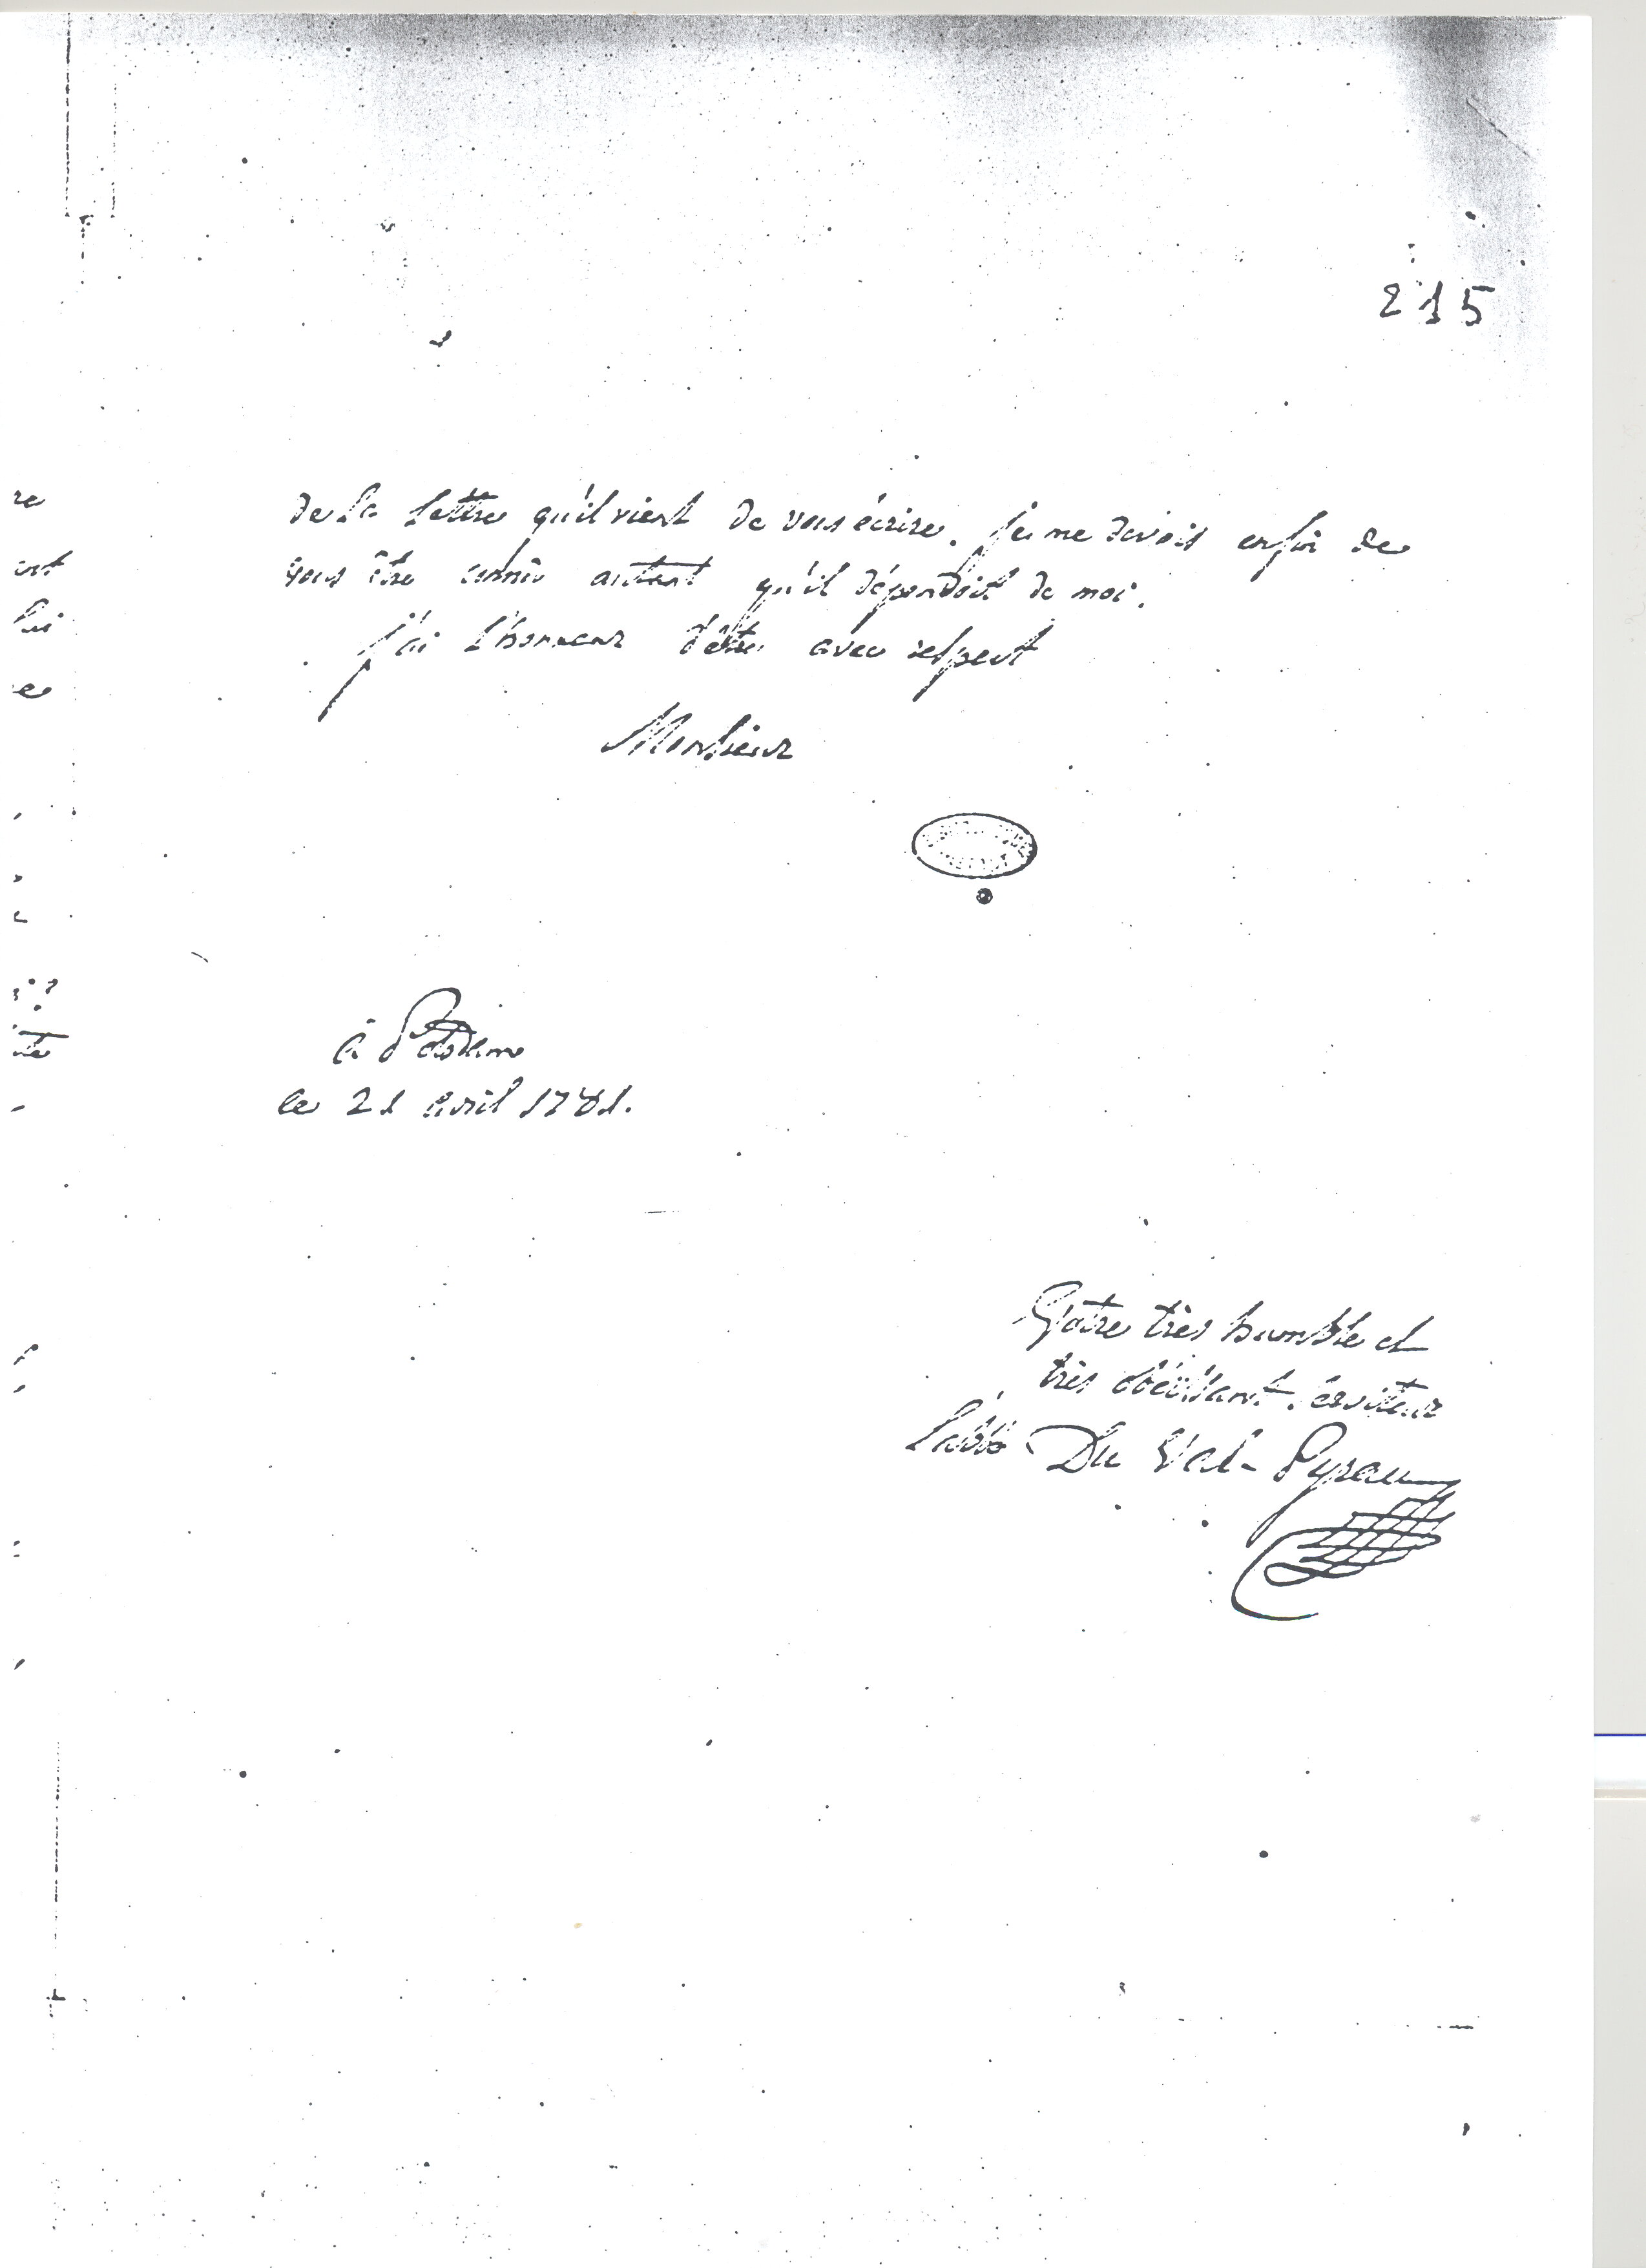 215
de la lettre qu'il vient de vous écrire. Je me devois enfin de
vous être connû autant qu'il dépendoit de moi.
J'ai l'honneur d'être avec respect
Monsieur
à Potsdam
le 21 avril 1781.
Vôtre très humble et
très obéissant serviteur
l'abbé Du Val-Pyrau